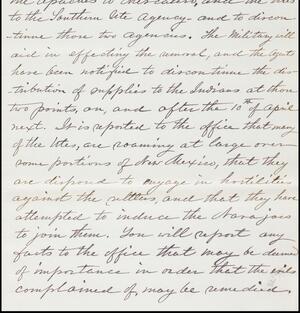 the Apaches to Mescalero, and the Utes
to the Southern Ute Agency and to discon-
tinue those two agencies. The Military will
aid in effecting the removal, and the Agents
have been notified to discontinue the dis-
tribution of supplies to the Indians at those
two points, on, and after the 10th of April
next. It is reported to the office that many
of the Utes, are roaming at large over
some portions of New Mexico, that they
are disposed to engage in hostilities
against the settlers, and that they have
attempted to induce the Navajoes
to join them. You will report any
facts to the office that may be deemed
of importance in order that the evils
complained of, may be remedied.